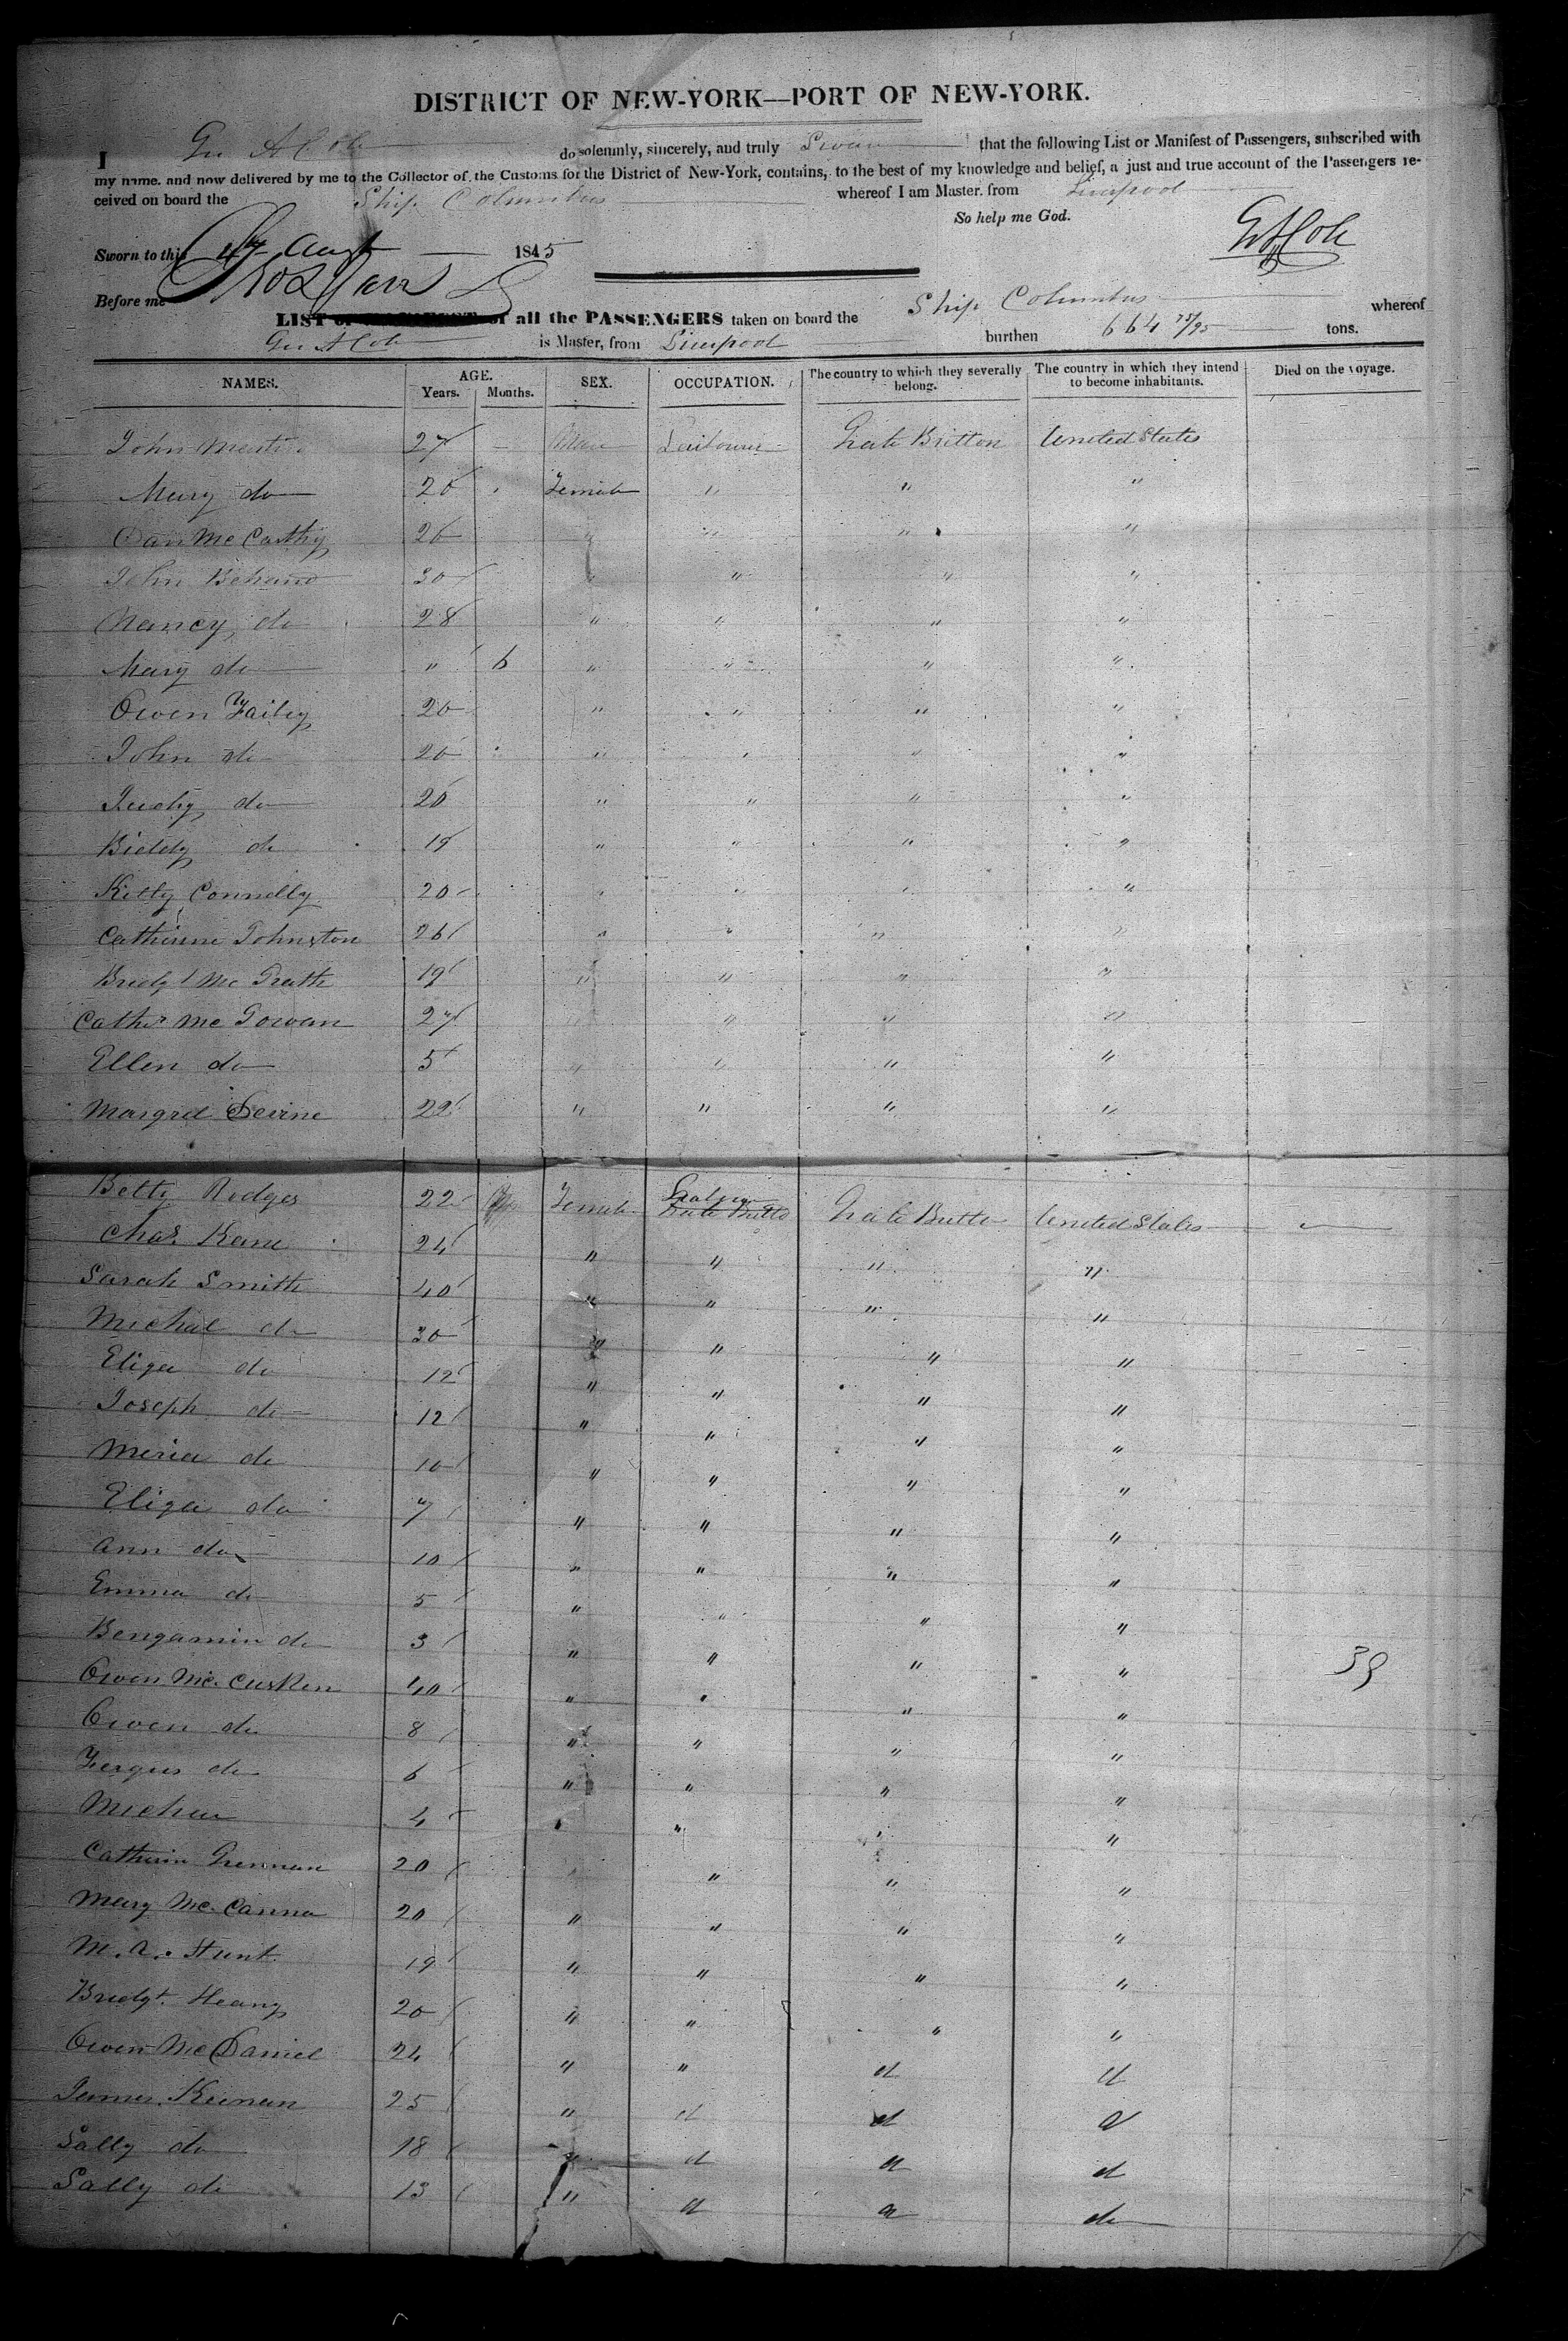 DISTRICT OF NEW-YORK—PORT OF NEW-YORK.
I Geo A Cole do solemnly, sincerely, and truly Swear that the following List or Manifest of Passengers, subscribed with
my name, and now delivered by me to the Collector of the Customs for the District of New-York, contains, to the best of my knowledge and belief, a just and true account of the Passengers re-
ceived on board the Ship Columbus whereof I am Master, from Liverpool
So help me God.
Sworn to this Augt 1845
G A Cole
Before me
LIST all the PASSENGERS taken on board the Ship Columbus whereof
Geo A Cole is Master, from Liverpool burthen 664 75/95 tons.
NAMES. AGE. Years. Months. SEX. OCCUPATION. The country to which they severally belong. The country in which they intend to become inhabitants. Died on the voyage.
John Martin 27 - Male Labourer Greate Britton United States
Mary do 20 Female " " "
Dan McCarthy 26 " " " "
John 30 " " " "
Nancy do 28 " " " "
Mary do " 6 " " " "
Owen 20 " " " "
John do 20 " " " "
Judy do 20 " " " "
Biddy do 19 " " " "
Kitty Connelly 20 " " " "
Catherine Johnston 26 " " " "
Bridgt Mc Grath 19 " " " "
Cathr Mc Gowan 27 " " " "
Ellen do 5 " " " "
Margret Devine 22 " " " "
Betty Rodges 22 Female United States
Chas. Kane 24 " " " "
Sarah Smith 40 " " " "
Michal do 30 " " " "
Eliza do 12 " " " "
Joseph do 12 " " " "
Meria do 10 " " " "
Eliza do 7 " " " "
Ann do 10 " " " "
Emma do 5 " " " "
Bengamin do 3 " " " "
Owen Mc Cusken 40 " " " " 39
Owen do 8 " " " "
Fergus do 6 " " " "
Michae 4 " " " "
Catharin Grennan 20 " " "
Mary Mc Canna 20 " " " "
M. A. Hunt 19 " " " "
Bridgt. Heany 20 " " " "
Owen McDaniel 24 " " d d
James Keenan 25 " d d d
Sally do 18 " d d d
Sally do 13 " d d do